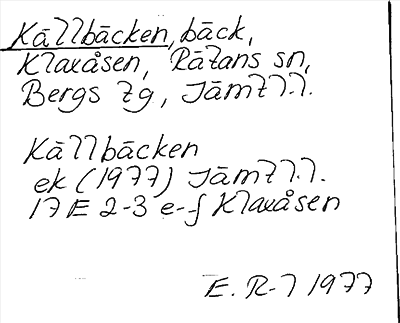 Källbäcken, bäck,
Klaxåsen, Rätans sn,
Bergs tg, Jämtl.l.
Källbäcken
ek (1977) Jämtl.l.
17E 2-3 e-f Klaxåsen
E. R-l 1977